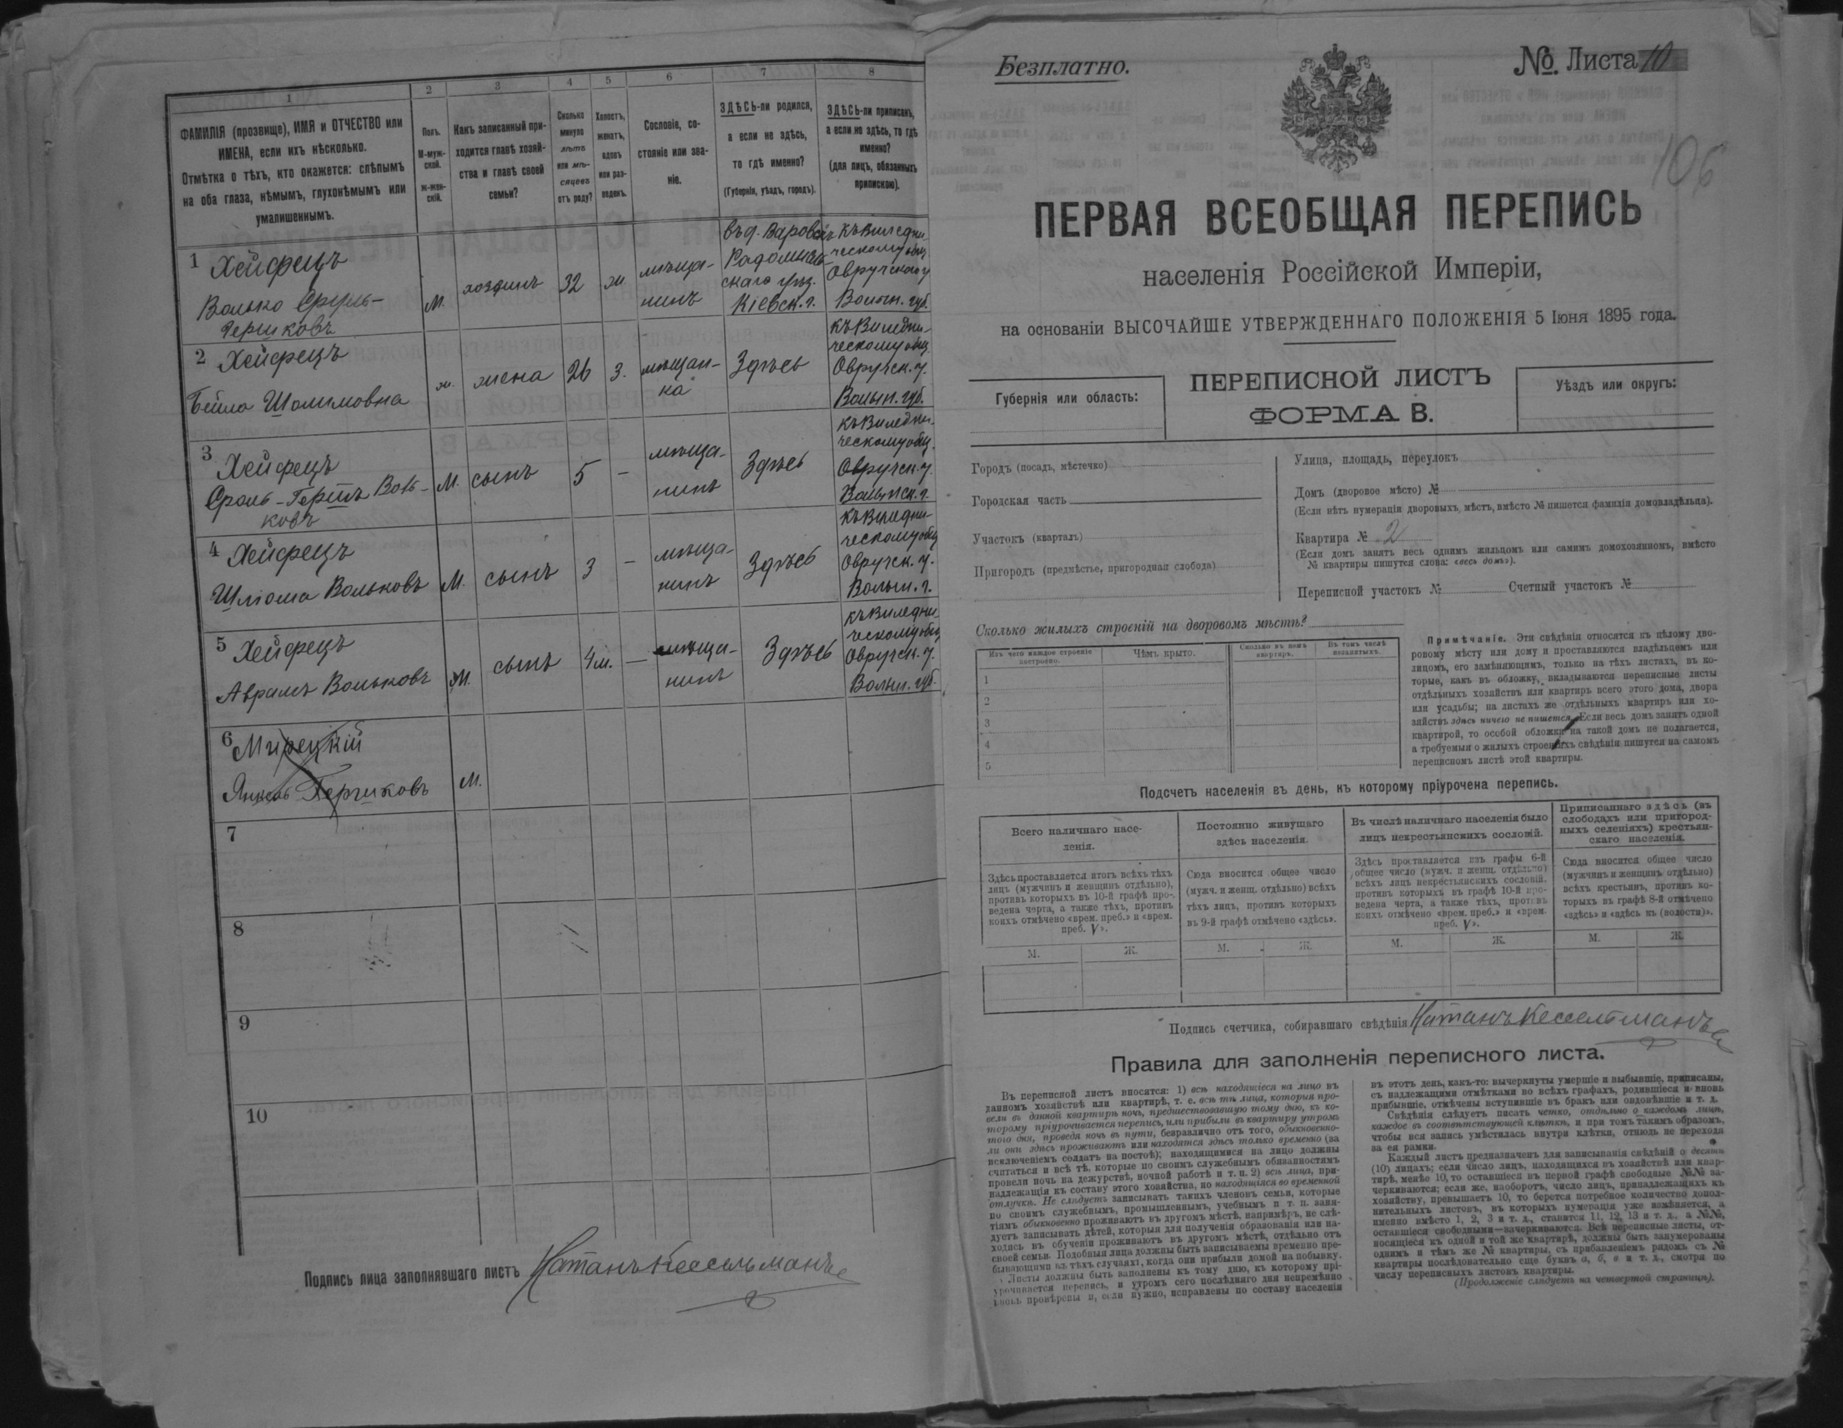 1 2 3 4 5 6 7 8
ФАМИЛІЯ (прозвище), ИМЯ и ОТЧЕСТВО или
ИМЕНА, если ихъ нѣсколько.
Отмѣтка о тѣхъ, кто окажется: слѣпымъ
на оба глаза, нѣмымъ, глухонѣмымъ или
умалишеннымъ.
Полъ.
М-муж-
ской.
ж-жен-
скій.
Какъ записанный при-
ходится главѣ хозяй-
ства и главѣ своей
семьи?
Сколько
минуло
лѣтъ
или мѣ-
сяцевъ
отъ роду?
Холостъ,
женатъ,
вдовъ
или раз-
веденъ.
Сословіе, со-
стояніе или зва-
ніе.
ЗДѢСЬ-ли родился,
а если не здѣсь,
то гдѣ именно?
(Губернія, уѣздъ, городъ).
ЗДѢСЬ-ли приписанъ,
а если не здѣсь, то гдѣ
именно?
(для лицъ, обязанныхъ
припискою).
1 Хейфецъ
Волько Сруль-
Гершковъ
М.
хозяинъ
32
ж
мѣща-
нинъ
въ д. Варовскъ
Радомысль-
скаго уѣзд.
Кіевск. г.
къ Виледни-
ческому общ.
Овручскаго у.
Волын. губ.
2 Хейфецъ
Бейла Шолимовна
ж.
жена
26
з.
мѣщан-
ка
Здѣсь
къ Виледни-
ческому общ.
Овручск. у.
Волын. губ.
3 Хейфецъ
Сроль-Гершъ Воль-
ковъ
М.
сынъ
5
–
мѣща-
нинъ
Здѣсь
къ Виледни-
ческому общ.
Овручск. у.
Волынск. г.
4 Хейфецъ
Шлиома Вольковъ
М.
сынъ
3
–
мѣща-
нинъ
Здѣсь
къ Виледни-
ческому общ.
Овручск. у.
Волын. г.
5 Хейфецъ
Аврамъ Вольковъ
М.
сынъ
4 м.
–
мѣща-
нинъ
Здѣсь
къ Виледни-
ческому общ.
Овручск. у.
Волын. губ.
6 Мирецкій
Янкель Гершковъ
М.
7
8
9
10
Подпись лица заполнявшаго листъ Натанъ Кессельманъ
Безплатно.
№ Листа 10
106
ПЕРВАЯ ВСЕОБЩАЯ ПЕРЕПИСЬ
населенія Россійской Имперіи,
на основаніи ВЫСОЧАЙШЕ УТВЕРЖДЕННАГО ПОЛОЖЕНІЯ 5 Іюня 1895 года.
Губернія или область:
ПЕРЕПИСНОЙ ЛИСТЪ
ФОРМА В.
Уѣздъ или округъ:
Городъ (посадъ, мѣстечко)
Городская часть
Участокъ (кварталъ)
Пригородъ (предмѣстье, пригородная слобода)
Улица, площадь, переулокъ
Домъ (дворовое мѣсто) №
(Если нѣтъ нумераціи дворовыхъ мѣстъ, вмѣсто № пишется фамилія домовладѣльца).
Квартира № 2
(Если домъ занятъ весь однимъ жильцомъ или самимъ домохозяиномъ, вмѣсто
№ квартиры пишутся слова: «весь домъ»).
Переписной участокъ № Счетный участокъ №
Сколько жилыхъ строеній на дворовомъ мѣстѣ?
Изъ чего каждое строеніе
построено.
Чѣмъ крыто.
Сколько въ немъ
квартиръ.
Въ томъ числѣ
незанятыхъ.
1
2
3
4
5
Примѣчаніе. Эти свѣдѣнія относятся къ цѣлому дво-
ровому мѣсту или дому и проставляются владѣльцемъ или
лицомъ, его замѣняющимъ, только на тѣхъ листахъ, въ ко-
торые, какъ въ обложку, вкладываются переписные листы
отдѣльныхъ хозяйствъ или квартиръ всего этого дома, двора
или усадьбы; на листахъ же отдѣльныхъ квартиръ или хо-
зяйствъ здѣсь ничего не пишется. Если весь домъ занятъ одной
квартирой, то особой обложки на такой домъ не полагается,
а требуемыя о жилыхъ строеніяхъ свѣдѣнія пишутся на самомъ
переписномъ листѣ этой квартиры.
Подсчетъ населенія въ день, къ которому пріурочена перепись.
Всего наличнаго насе-
ленія.
Постоянно живущаго
здѣсь населенія.
Въ числѣ наличнаго населенія было
лицъ некрестьянскихъ сословій.
Приписаннаго здѣсь (въ
слободахъ или пригород-
ныхъ селеніяхъ) крестьян-
скаго населенія.
Здѣсь проставляется итогъ всѣхъ тѣхъ
лицъ (мужчинъ и женщинъ отдѣльно),
противъ которыхъ въ 10-й графѣ про-
ведена черта, а также тѣхъ, противъ
коихъ отмѣчено «врем. преб.» и «врем.
преб. V».
Сюда вносится общее число
(мужч. и женщ. отдѣльно) всѣхъ
тѣхъ лицъ, противъ которыхъ
въ 9-й графѣ отмѣчено «здѣсь».
Здѣсь проставляется изъ графы 6-й
общее число (мужч. и женщ. отдѣльно)
всѣхъ лицъ некрестьянскихъ сословій,
противъ которыхъ въ графѣ 10-й про-
ведена черта, а также тѣхъ, противъ
коихъ отмѣчено «врем. преб.» и «врем.
преб. V».
Сюда вносится общее число
(мужчинъ и женщинъ отдѣльно)
всѣхъ крестьянъ, противъ ко-
торыхъ въ графѣ 8-й отмѣчено
«здѣсь» и «здѣсь къ (волости)».
М. Ж. М. Ж. М. Ж. М. Ж.
Подпись счетчика, собиравшаго свѣдѣнія Натанъ Кессельманъ
Правила для заполненія переписного листа.
Въ переписной листъ вносятся: 1) всѣ находящіеся на лицо въ
данномъ хозяйствѣ или квартирѣ, т. е. всѣ тѣ лица, которыя про-
вели въ данной квартирѣ ночь, предшествовавшую тому дню, къ ко-
торому пріурочивается перепись, или прибыли въ квартиру утромъ
того дня, проведя ночь въ пути, безразлично отъ того, обыкновенно-
ли они здѣсь проживаютъ или находятся здѣсь только временно (за
исключеніемъ солдатъ на постоѣ); находящимися на лицо должны
считаться и всѣ тѣ, которые по своимъ служебнымъ обязанностямъ
провели ночь на дежурствѣ, ночной работѣ и т. п. 2) всѣ лица, при-
надлежащія къ составу этого хозяйства, но находящіяся во временной
отлучкѣ. Не слѣдуетъ записывать такихъ членовъ семьи, которые
по своимъ служебнымъ, промышленнымъ, учебнымъ и т. п. заня-
тіямъ обыкновенно проживаютъ въ другомъ мѣстѣ, напримѣръ, не слѣ-
дуетъ записывать дѣтей, которыя для полученія образованія или на-
ходясь въ обученіи проживаютъ въ другомъ мѣстѣ, отдѣльно отъ
своей семьи. Подобныя лица должны быть записываемы временно пре-
бывающими въ тѣхъ случаяхъ, когда они прибыли домой на побывку.
Листы должны быть заполнены къ тому дню, къ которому прі-
урочивается перепись, и утромъ сего послѣдняго дня непремѣнно
вновь провѣрены и, если нужно, исправлены по составу населенія
въ этотъ день, какъ-то: вычеркнуты умершіе и выбывшіе, приписаны,
съ надлежащими отмѣтками во всѣхъ графахъ, родившіеся и вновь
прибывшіе, отмѣчены вступившіе въ бракъ или овдовѣвшіе и т. д.
Свѣдѣнія слѣдуетъ писать четко, отдѣльно о каждомъ лицѣ,
каждое въ соотвѣтствующей клѣткѣ, и при томъ такимъ образомъ,
чтобы вся запись умѣстилась внутри клѣтки, отнюдь не переходя
за ея рамки.
Каждый листъ предназначенъ для записыванія свѣдѣній о десяти
(10) лицахъ; если число лицъ, находящихся въ хозяйствѣ или квар-
тирѣ, менѣе 10, то оставшіеся въ первой графѣ свободные №№ за-
черкиваются; если же, наоборотъ, число лицъ, принадлежащихъ къ
хозяйству, превышаетъ 10, то берется потребное количество допол-
нительныхъ листовъ, въ которыхъ нумерація уже измѣняется, а
именно вмѣсто 1, 2, 3 и т. д., ставится 11, 12, 13 и т. д., а №№,
оставшіеся свободными—зачеркиваются. Всѣ переписные листы, от-
носящіеся къ одной и той же квартирѣ, должны быть занумерованы
однимъ и тѣмъ же № квартиры, съ прибавленіемъ рядомъ съ №
квартиры послѣдовательно еще буквъ а, б, в и т. д., смотря по
числу переписныхъ листовъ квартиры.
(Продолженіе слѣдуетъ на четвертой страницѣ).